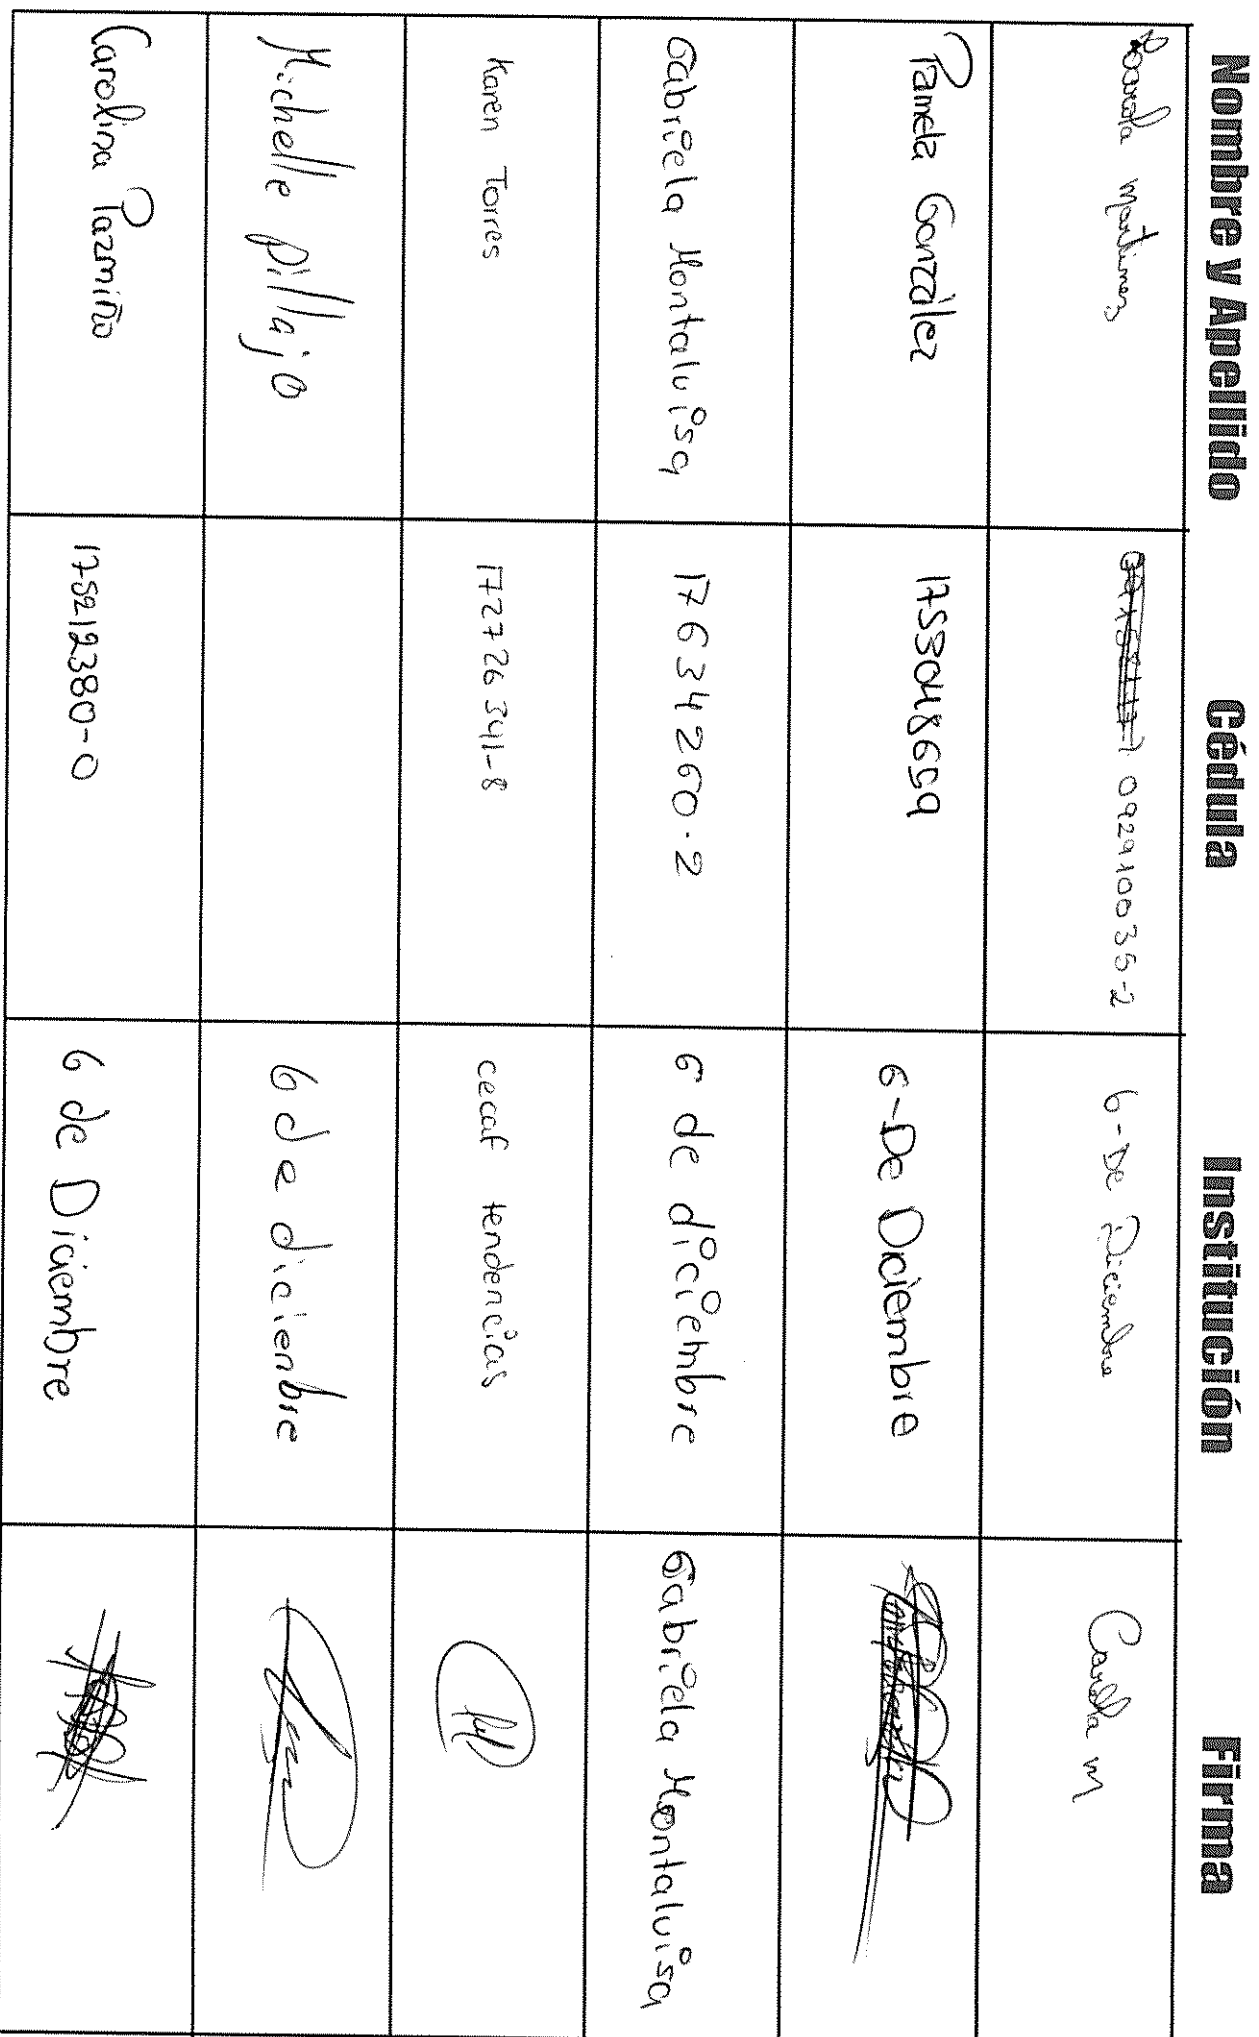 Nombre y Apellido Cédula Institución Firma
Martinez 092910035-2 6-De Diciembre Carolla m
Pamela González 1753048659 6-De Diciembre
Gabriela Montaluisa 17634260-2 6 de diciembre Gabriela Montaluisa
Karen Torres 172726341-8 cecaf tendencias
Michelle pillajo 6 de dicienbre
Carolina Pazmiño 175212380-0 6 de Diciembre